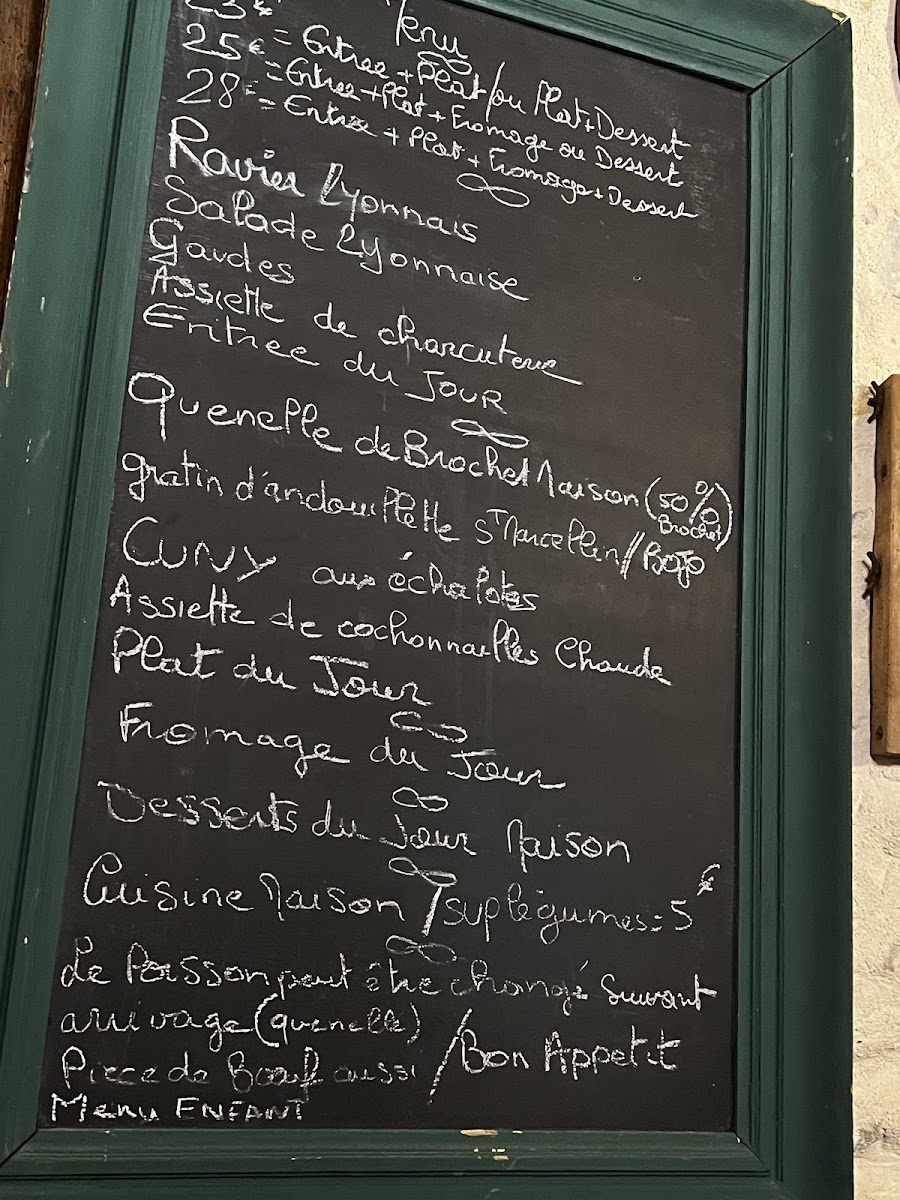 Menu
23€ = Entree + Plat / ou Plat + Dessert
25€ = Entree + Plat + Fromage ou Dessert
28€ = Entree + Plat + Fromage + Dessert
Ravier Lyonnais
Salade Lyonnaise
Gaudes
Assiette de charcuterie
Entree du Jour
Quenelle de Brochet Maison (50% Brochet)
gratin d'andouillette St Marcellin // BOJO
CUNY aux échalotes
Assiette de cochonnailles Chaude
Plat du Jour
Fromage du Jour
Desserts du Jour Maison
Cuisine Maison / sup légumes: 5€
Le Poisson peut être changé Suivant
arrivage (quenelle)
Piece de Bœuf aussi / Bon Appetit
Menu ENFANT